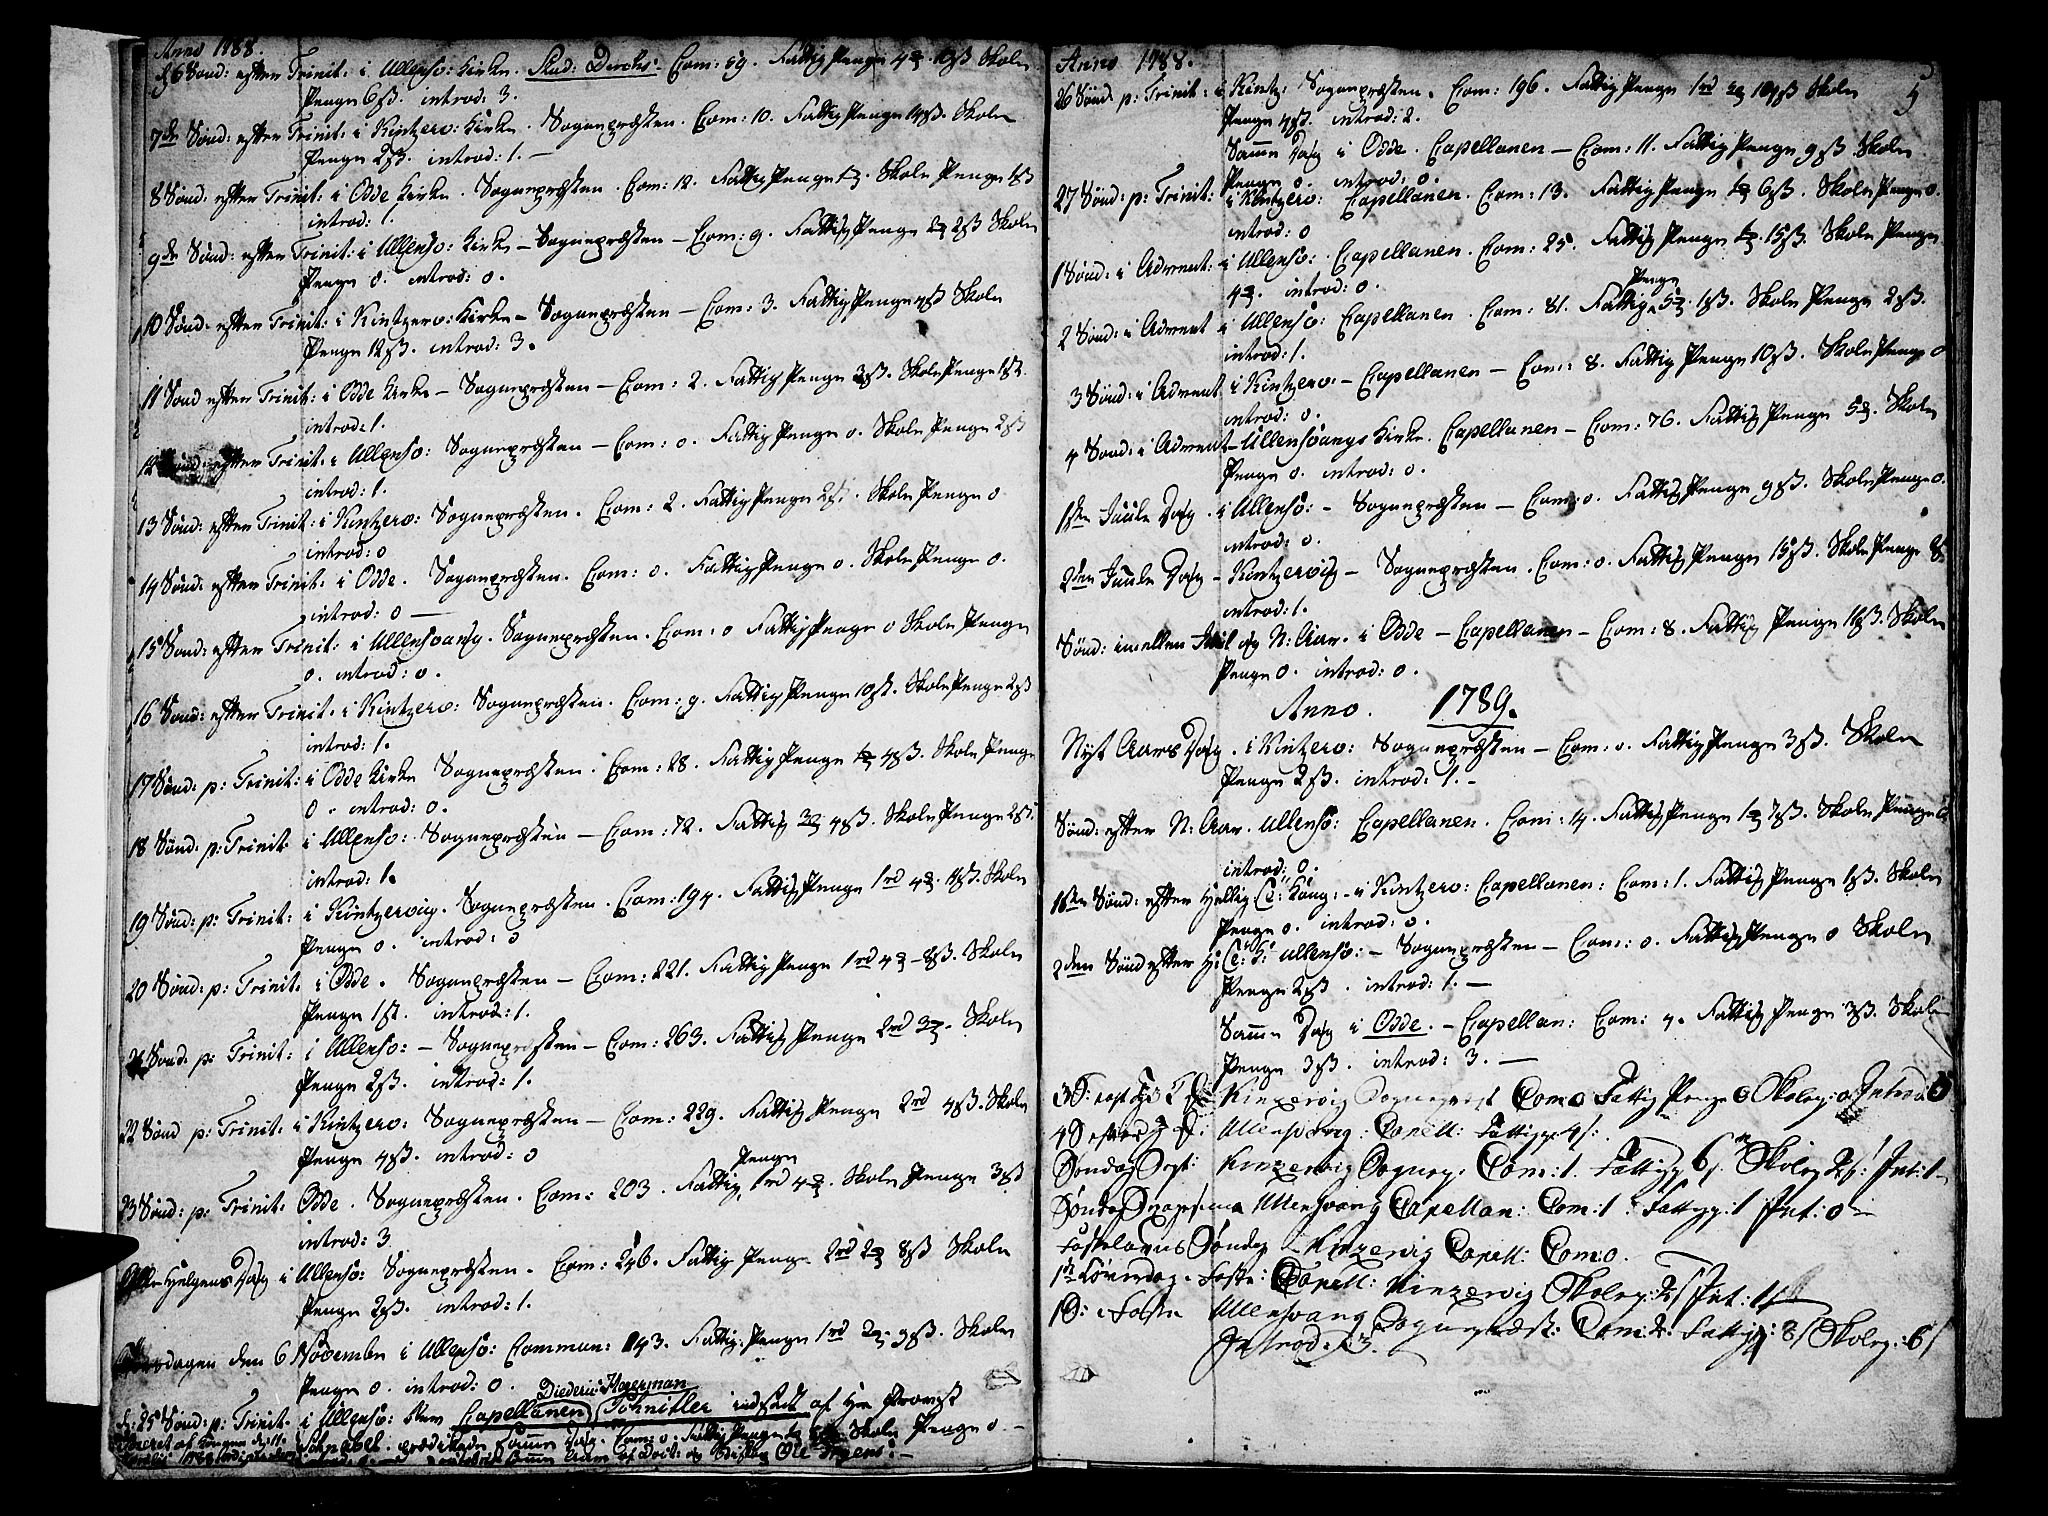 Anno 1788.
d: 6 Sønd: efter Trinit: i Ullensv: Kirke. Stud: Dircks: Com: 59. Fattig Penge 4 10ß Skole
Penge 6ß. introd: 3.
7de Sønd: efter Trinit: i Kintzerv: Kirke. Sognepræsten. Com: 10. Fattig Penge 14ß. Skole
Penge 2ß. introd: 1. –
8 Sønd: efter Trinit: i Odde Kirke. Sognepræsten. Com: 12. Fattig Penge 1. Skole Penge 1ß
introd: 1.
9de Sønd: efter Trinit: i Ullensv: Kirke – Sognepræsten – Com: 9. Fattig Penge 2 2ß Skole
Penge 0. introd: 0.
10 Sønd: efter Trinit: i Kintzerv: Kirke – Sognepræsten – Com: 3. Fattig Penge 4ß Skole
Penge 12ß. introd: 3.
11 Sønd efter Trinit: i Odde Kirke – Sognepræsten – Com: 2. Fattig Penge 3ß. Skole Penge 1ß.
introd: 1.
12 Sønd: efter Trinit: i Ullensv: Sognepræsten – Com: 0. Fattig Penge 0. Skole Penge 2ß
introd: 1.
13 Sønd: efter Trinit: i Kintzerv: Sognepræsten. Com: 2. Fattig Penge 2ß. Skole Penge 0
introd: 0
14 Sønd: efter Trinit: i Odde. Sognepræsten. Com: 0. Fattig Penge 0. Skole Penge 0.
introd: 0 –
15 Sønd: efter Trinit: i Ullensvang. Sognepræsten. Com: 0 Fattig Penge 0 Skole Penge
0. introd: 0.
16 Sønd: efter Trinit: i Kintzerv: Sognepræsten. Com: 9. Fattig Penge 10ß. Skole Penge 2ß
introd: 1.
17 Sønd: p: Trinit: i Odde Kirke Sognepræsten. Com: 28. Fattig Penge 1 4ß. Skole Penge
0. introd: 0.
18 Sønd: p: Trinit: i Ullensv: Sognepræsten – Com: 72. Fattig 3 4ß. Skole Penge 2ß.
introd: 1.
19 Sønd: p: Trinit: i Kintzervig. Sognepræsten. Com: 194. Fattig Penge 1rd 4 4ß. Skole
Penge 0. introd: 0
20 Sønd: p: Trinit: i Odde. Sognepræsten – Com: 221. Fattig Penge 1rd 4 – 8ß. Skole
Penge 1ß. introd: 1.
21 Sønd: p: Trinit: i Ullensv: – Sognepræsten – Com: 263. Fattig Penge 2rd 3. Skole
Penge 2ß. introd: 1.
22 Sønd p: Trinit: i Kintzerv: Sognepræsten – Com: 229. Fattig Penge 2rd 4ß. Skole
Penge 4ß. introd: 0
23 Sønd: p: Trinit: Odde. Sognepræsten. Com: 203. Fattig Penge 1rd 4. Skole Penge 3ß
introd: 3
Alle Helgens Dag i Ullensv: Sognepræsten. Com: 246. Fattig Penge 2rd 2 8ß Skole
Penge 2ß. introd: 1.
dagen den 6 Novembr i Ullensv: Commun: 143. Fattig: Penge 1rd 2 9ß. Skole
Penge 0. introd: 0.
Diederic Hagerman
d: 25 Sønd: p: Trinit: i Ullensv: blev Capellanen Schnitler indsadt af Hr Provst
Schnabel. prædikede samme Dag. Com: 0. Fattig Penge Skole Penge 0. –
Anno 1788.
5
26 Sønd p: Trinit: i Kintz: Sognepræsten. Com: 196. Fattig Penge 1rd 2 10ß Skole
Penge 4ß. introd: 2.
Samme Dag i Odde. Capellanen – Com: 11. Fattig Penge 9ß Skole
Penge 0. introd: 0.
27 Sønd: p: Trinit: i Kintzerv: Capellanen. Com: 13. Fattig Penge 1 6ß. Skole Penge 0.
introd: 0
1 Sønd: i Advent: i Ullensv: Capellanen. Com: 25. Fattig Penge 1 15ß. Skole Penge
4. introd: 0.
2 Sønd: i Advent i Ullensv: Capellanen. Com: 81. Fattig Penge 5 1ß. Skole Penge 2ß.
introd: 1.
3 Sønd: i Advent i Kintzerv. – Capellanen – Com: 8. Fattig Penge 10ß. Skole Penge 0
introd: 0.
4 Sønd: i Advent – Ullensvangs Kirke. Capellanen – Com: 76. Fattig Penge 5. Skole
Penge 0. introd: 0.
1ste Juule Dag. i Ullensv: – Sognepræsten – Com: 0. Fattig Penge 9ß. Skole Penge 0.
introd: 0.
2den Juule Dag – Kintzervig – Sognepræsten. Com: 0. Fattig Penge 15ß. Skole Penge 8
introd: 1.
Sønd: imellem Juul og N: Aar. i Odde – Capellanen – Com: 8. Fattig Penge 11ß. Skole
Penge 0. introd: 0.
Anno. 1789.
Nyt Aars Dag. i Kintzerv: Sognepræsten – Com: 0. Fattig Penge 3ß. Skole
Penge 2ß. introd: 1. –
Sønd: efter N: Aar. Ullensv: Capellanen. Com: 14. Fattig Penge 1 7ß. Skole Penge
introd: 0.
1ste Sønd: efter Hellig: 3: Kong: – i Kintzerv: Capellanen: Com: 1. Fattig Penge 1ß. Skole
Penge 0. introd: 0.
2den Sønd efter H: 3: K: Ullensv: – Sognepræsten – Com: 0. Fattig Penge 0 Skole
Penge 2ß. introd: 1. –
Samme Dag i Odde. – Capellan: Com: 4. Fattig Penge 3ß. Skole
Penge 3ß. introd: 3. –
Kinzervig Sognepræst Com 0 Fattig Penge 0 Skolep: 0 Introd: 0
Ullensvang: Capell: Fattigp 4ß:
Søndag Sept: Kinzervig Sognep: Com: 1. Fattigp 6ß Skolep 2ß: Int: 1 –
Søndag Ullensvang Capellan: Com: 1. Fattigp: 1 Int: 0 –
Fastelavns Søndag – Kinzervig Capell: Com: 0.
Capell: Kinzervig Skolep: 2ß Int: 1
1 S: i Faste Ullensvang Sognepræst: Com: 2: Fattigp: 8ß Skolep: 6ß
Introd: 3.